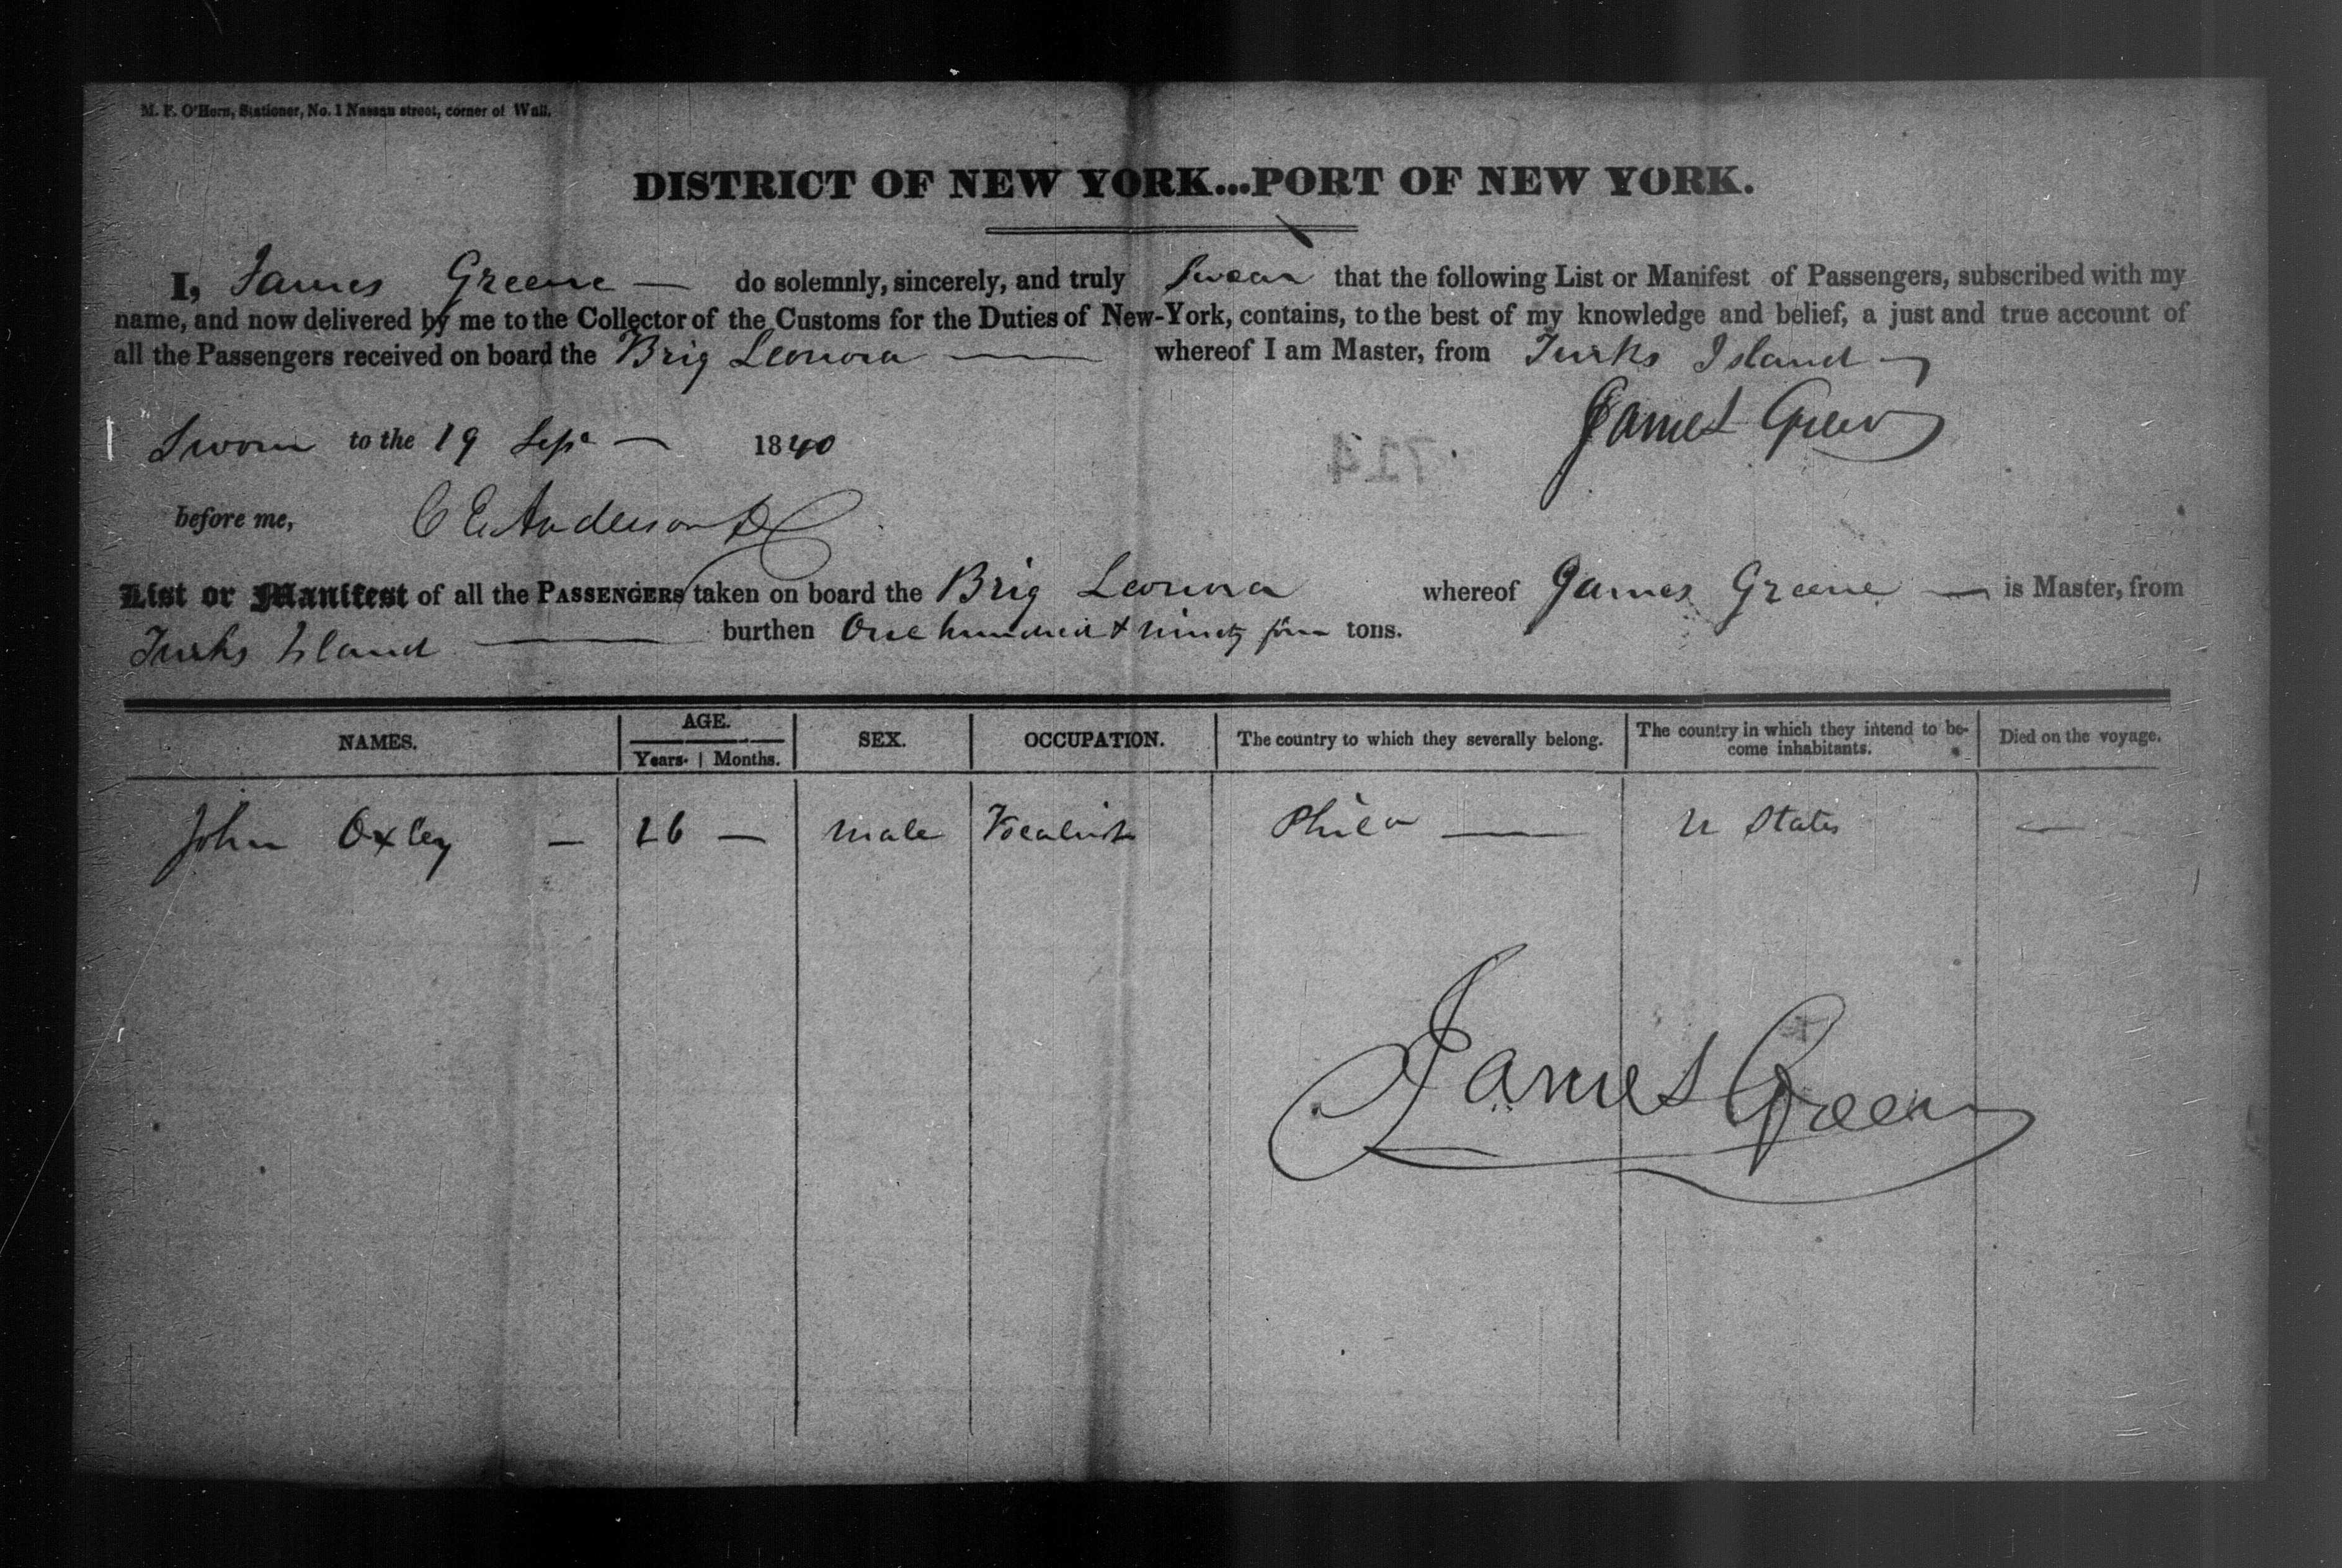 M. F. O'Hern, Stationer, No. 1 Nassau street, corner of Wall.
DISTRICT OF NEW YORK...PORT OF NEW YORK.
I, James Greene — do solemnly, sincerely, and truly Swear that the following List or Manifest of Passengers, subscribed with my
name, and now delivered by me to the Collector of the Customs for the Duties of New-York, contains, to the best of my knowledge and belief, a just and true account of
all the Passengers received on board the Brig Leonora — whereof I am Master, from Turks Island —
James Green
Sworn to the 19 Sept — 1840
714
before me, C C Anderson DC
List or Manifest of all the PASSENGERS taken on board the Brig Leonora whereof James Greene — is Master, from
Turks Island — burthen One hundred & ninety four tons.
NAMES. AGE. SEX. OCCUPATION. The country to which they severally belong. The country in which they intend to be- Died on the voyage.
Years. Months. come inhabitants.
John Oxley — 26 — male Vocalist Phila — U States —
James Green